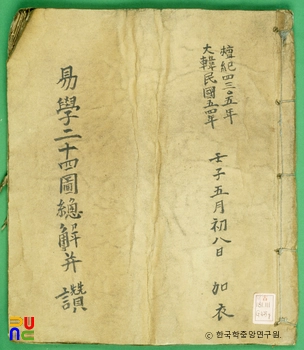 檀紀四三〇五年
大韓民國五四年
壬子五月初八日 加衣
易學二十四圖總解并讚
© 한국학중앙연구원